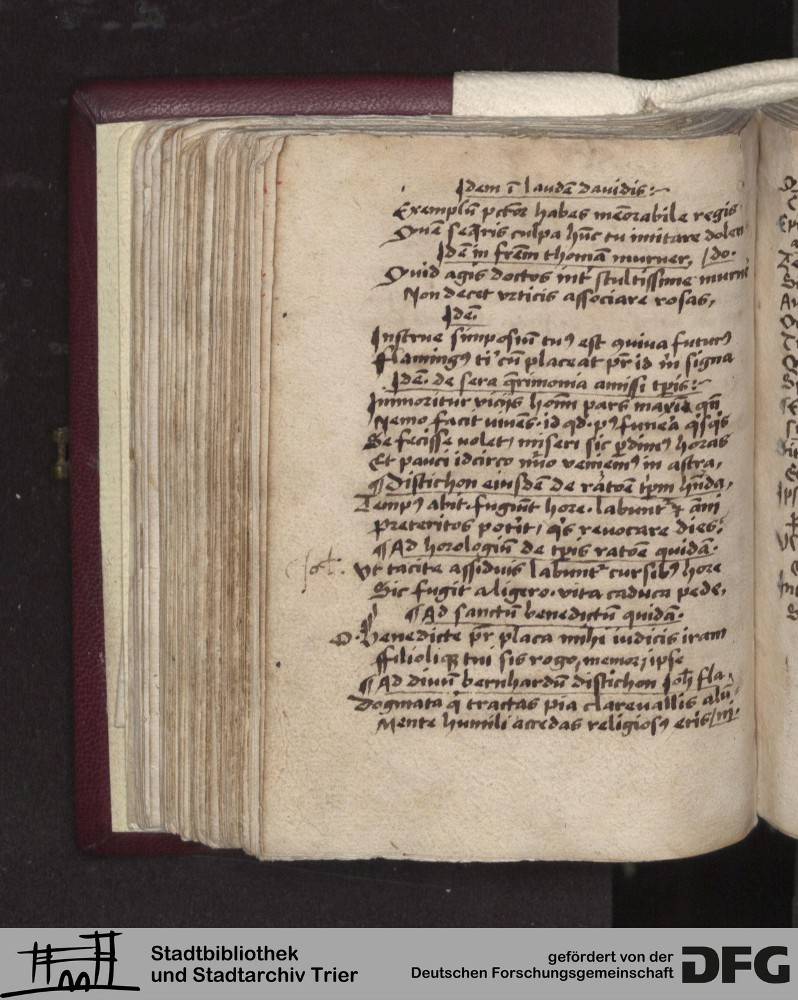 Idem ī laudē davidis:~
Exemplū pctor habes memorabile regis
Quē seqris culpa hūc tu imitare dolen
Idē in frēm thomā murner, /do.
Quid agis doctos int stultissime murne
Non decet vrticis associare rosas,
Idē
Instrue simposiū tuꝰ est futurꝰ
Flamingꝰ ti cū placeat pr id in signa
Idē. de sera qrimonia amissi tpis:~
Immoritur vicijs homī pars maxīa
Nemo facit viuēs. id qd. pꝰ funera
Se fecisse volet, miseri sic pdimꝰ horas
Et pauci idcirco veniemꝰ in astra,
¶ Distichon eiusdē de ratōe tpm hnda,
Tempꝰ abit. fugiūt hore. labunt
Preteritos potit, qs revocare dies:
¶ Ad horologiū de tpis ratōe quidā.
Vt tacite assiduis labunt cursibꝰ hore
Sic fugit aligero. vita caduca pede,
¶ Ad sanctū benedictū quidā.
O. benedicte pr placa mihi iudicis iram
ffilioliqꝫ tui sis rogo, memor, ipse
¶ Ad diuū bernhardū distichon Joh fla.
Dogmata q tractas pia clarevallis alū
Mente humili acredas religiosꝰ eris/ni.
Stadtbibliothek
und Stadtarchiv Trier
gefördert von der
Deutschen Forschungsgemeinschaft
DFG